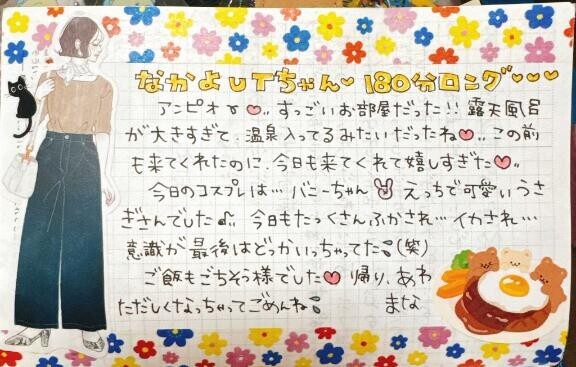 なかよしTちゃん♡ 180分ロング♡♡♡
アンピオで♡‥ すっごいお部屋だった!! 露天風呂
が大きすぎて、温泉入ってるみたいだったね♡‥ この前
も来てくれたのに、今日も来てくれて嬉しすぎた♡‥
今日のコスプレは… バニーちゃん🐰 えっちで可愛いうさ
ぎさんでした♪‥ 今日もたっくさんふかされ… イカされ…
意識が最後はどっかいっちゃってた💦(笑)
ご飯もごちそう様でした♡ 帰り、あわ
ただしくなっちゃってごめんね💦 まな